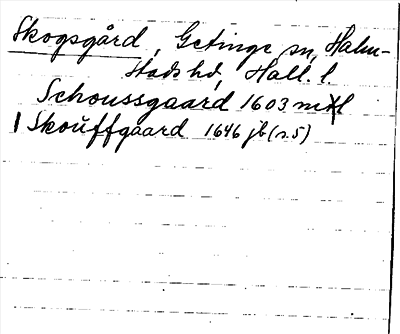 Skogsgård, Getinge sn, Halm-
stads hd, Hall. l.
Schoussgaard 1603 mtl
Skoŭffgaard 1646 jb (s. 5)